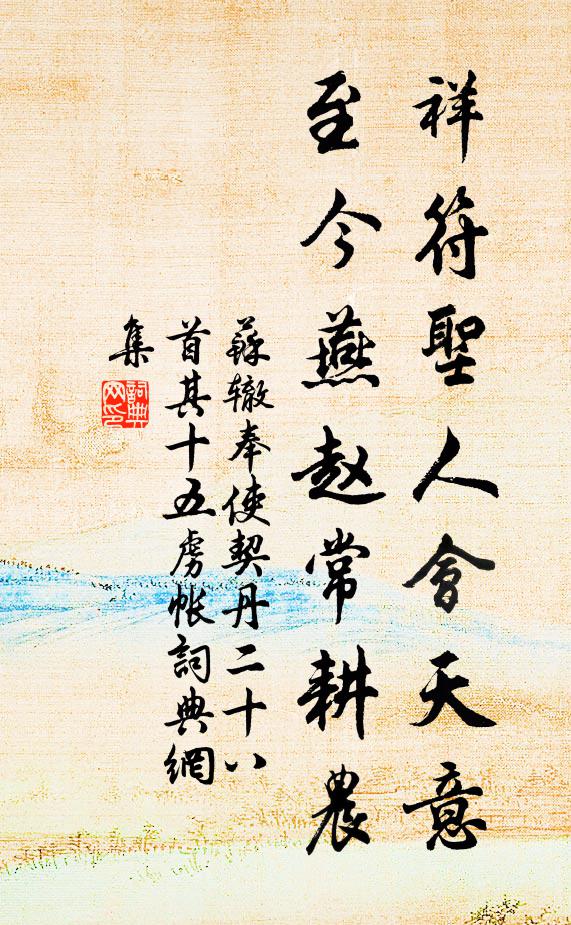 祥符聖人會天意
至今燕赵常耕農
蘇辙奉使契丹二十八
首其十五虏帐詞典網
集
詞典
网印